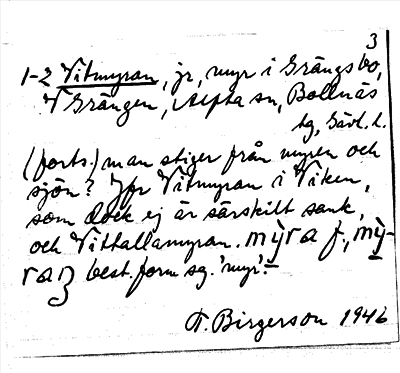 3
1-2 Vitmyran, jr, myr i Grängsbo,
V Grängen, Alfta sn, Bollnäs
tg, Gävl. l.
(forts.) man stiger från myren och
sjön? Jfr Vitmyran i Viken,
som dock ej är särskilt sank,
och Vittallamyran. mỳra f., mỳ-
raṇ best. form sg. 'myr'.
T. Birgerson 1946